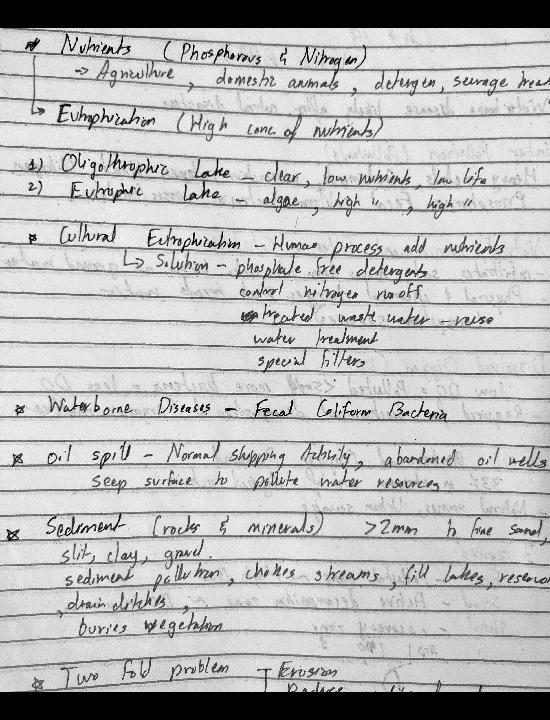 * Nutrients (Phosphorous & Nitrogen)
→ Agriculture, domestic animals, detergen, sewage treat
↳ Eutrophization (High conc. of nutrients)
1) Oligothrophic Lake - clear, low nutrients, low life
2) Eutrophic Lake - algae, high ", high "
* Cultural Eutrophization - Human process add nutrients
↳ Solution - phosphate free detergents
control nitrogen runoff
treated waste water - reuse
water treatment
special filters
* Waterborne Diseases - Fecal Coliform Bacteria
* Oil spill - Normal shipping Activity, abandoned oil wells
seep surface to pollute water resources
* Sediment (rocks & minerals) >2mm to fine sand,
slit, clay, gravel.
sediment pollution, chokes streams, fill lakes, reservo
, drain ditches,
buries vegetation
* Two fold problem Erosion